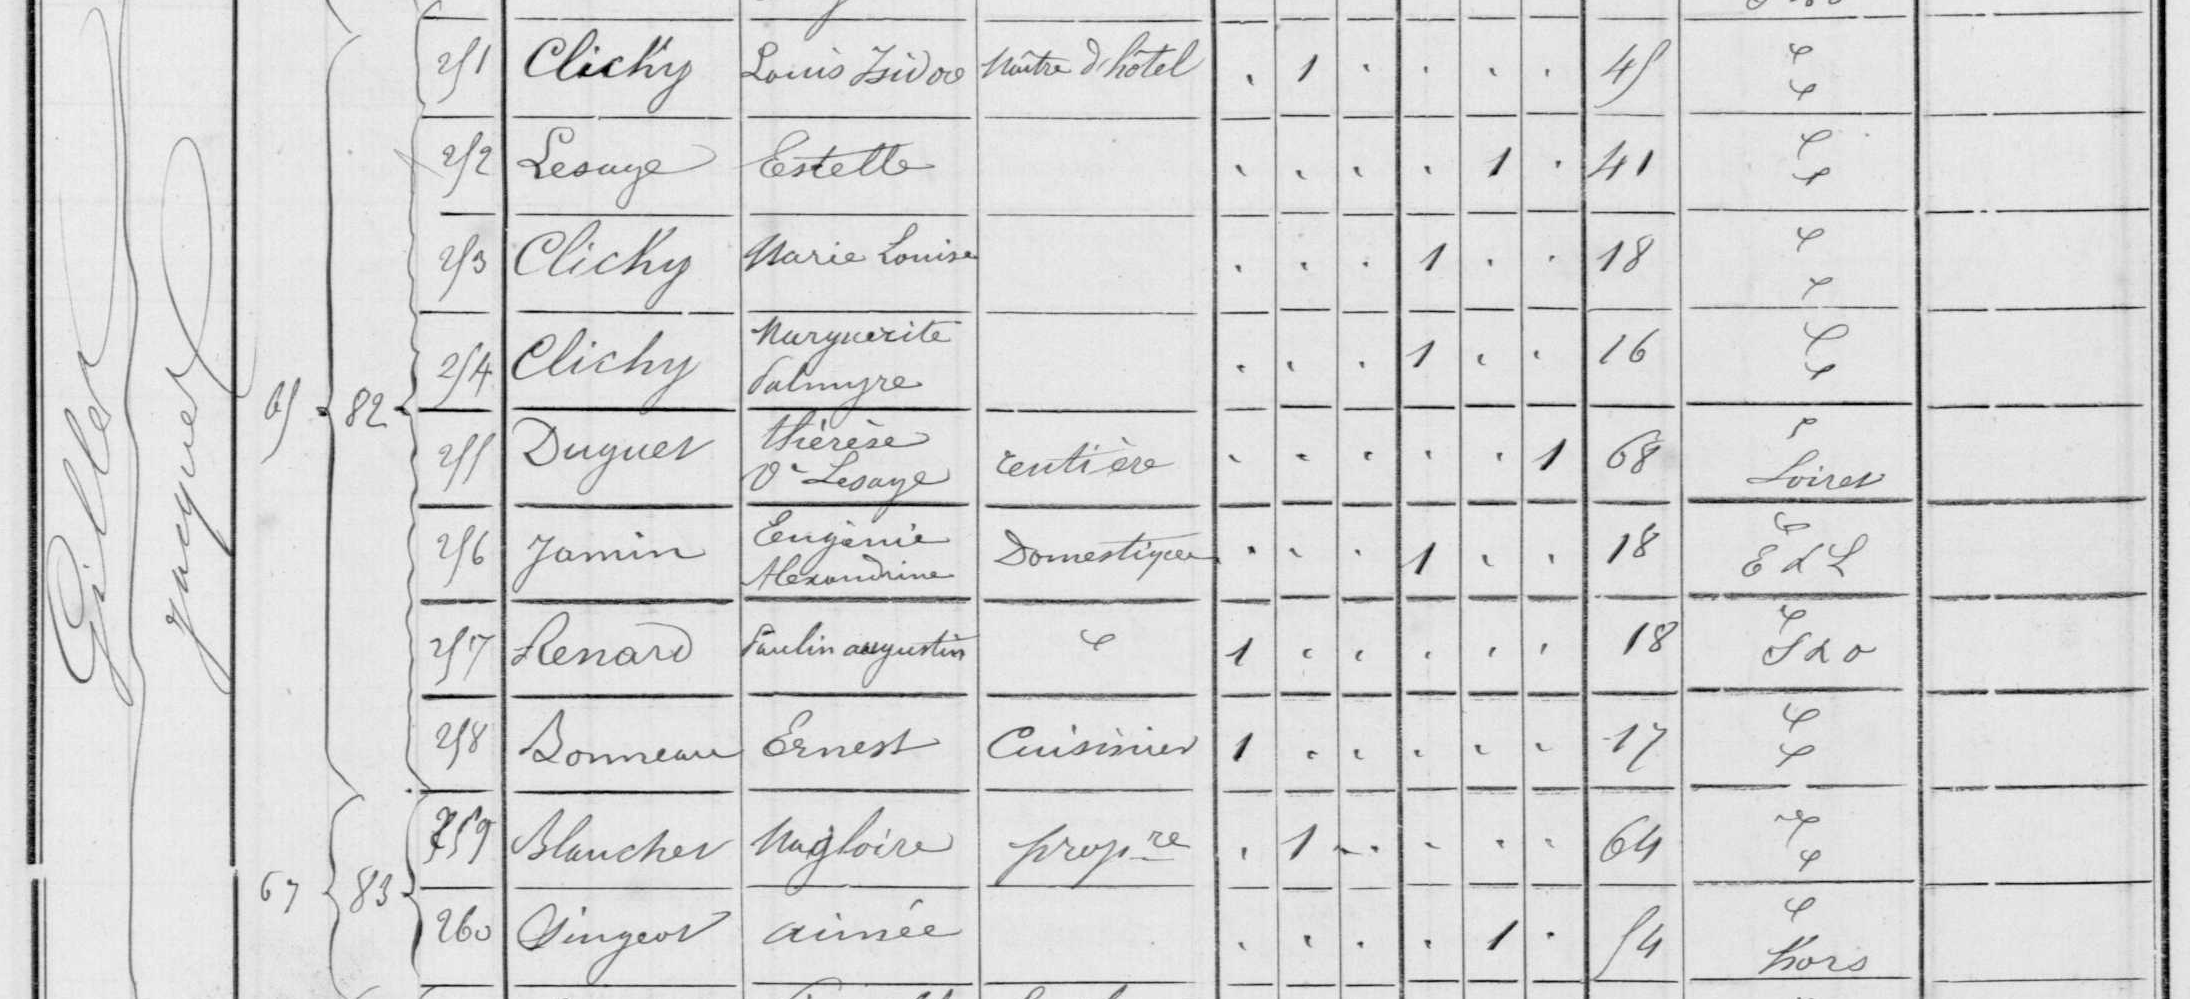 251 Clichy Louis Isidore Maître d'hôtel . 1 . . . . 45 " "
252 Lesage Estelle . . . . 1 . 41 " "
253 Clichy Marie Louise . . . 1 . . 18 " "
254 Clichy Marguerite Palmyre . . . 1 . . 16 " "
65 82
255 Duguet thérèse Ve Lesage rentière . . . . . 1 68 " Loiret
256 Jamin Eugènie Alexandrine Domestique . . . 1 . . 18 " E & L
257 Renard Paulin augustin " 1 . . . . . 18 " S & O
258 Bonneau Ernest Cuisinier 1 . . . . . 17 " "
259 Blanchet Magloire propre . 1 . . . . 64 " "
67 83
260 Singeot aimée . . . . 1 . 54 " hors
Gilles
jacques